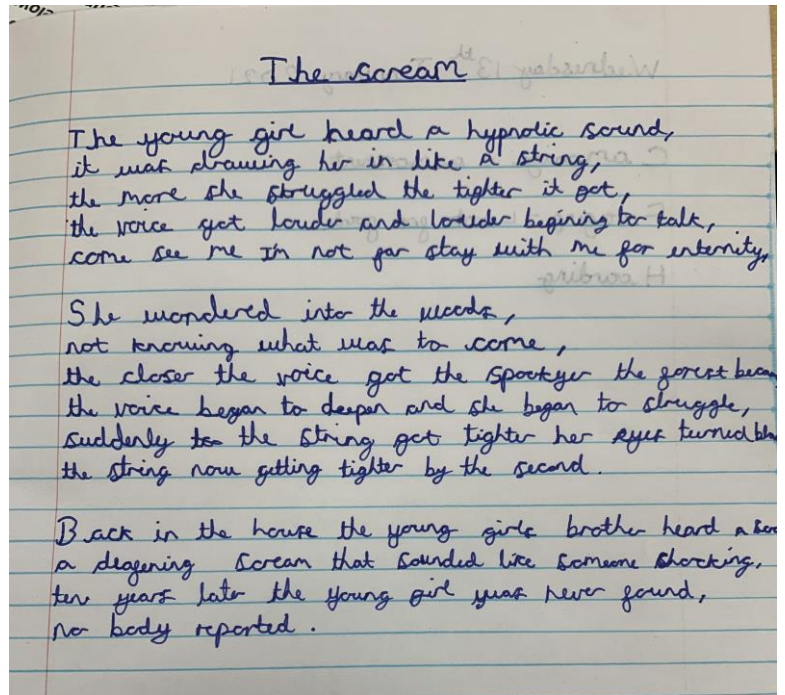 The scream
The young girl heard a hypnotic sound,
it was drawing her in like a string,
the more she struggled the tighter it got,
the voice got louder and louder begining to talk,
come see me I'm not far stay with me for enternity,
She wondered into the woods,
not knowing what was to come,
the closer the voice got the spookyer the forest becam
the voice began to deepen and she began to struggle,
suddenly the string got tighter her eyes turned bla
the string now getting tighter by the second.
Back in the house the young girls brother heard a
a deafening scream that sounded like someone shocking,
ten years later the young girl was never found,
no body reported.